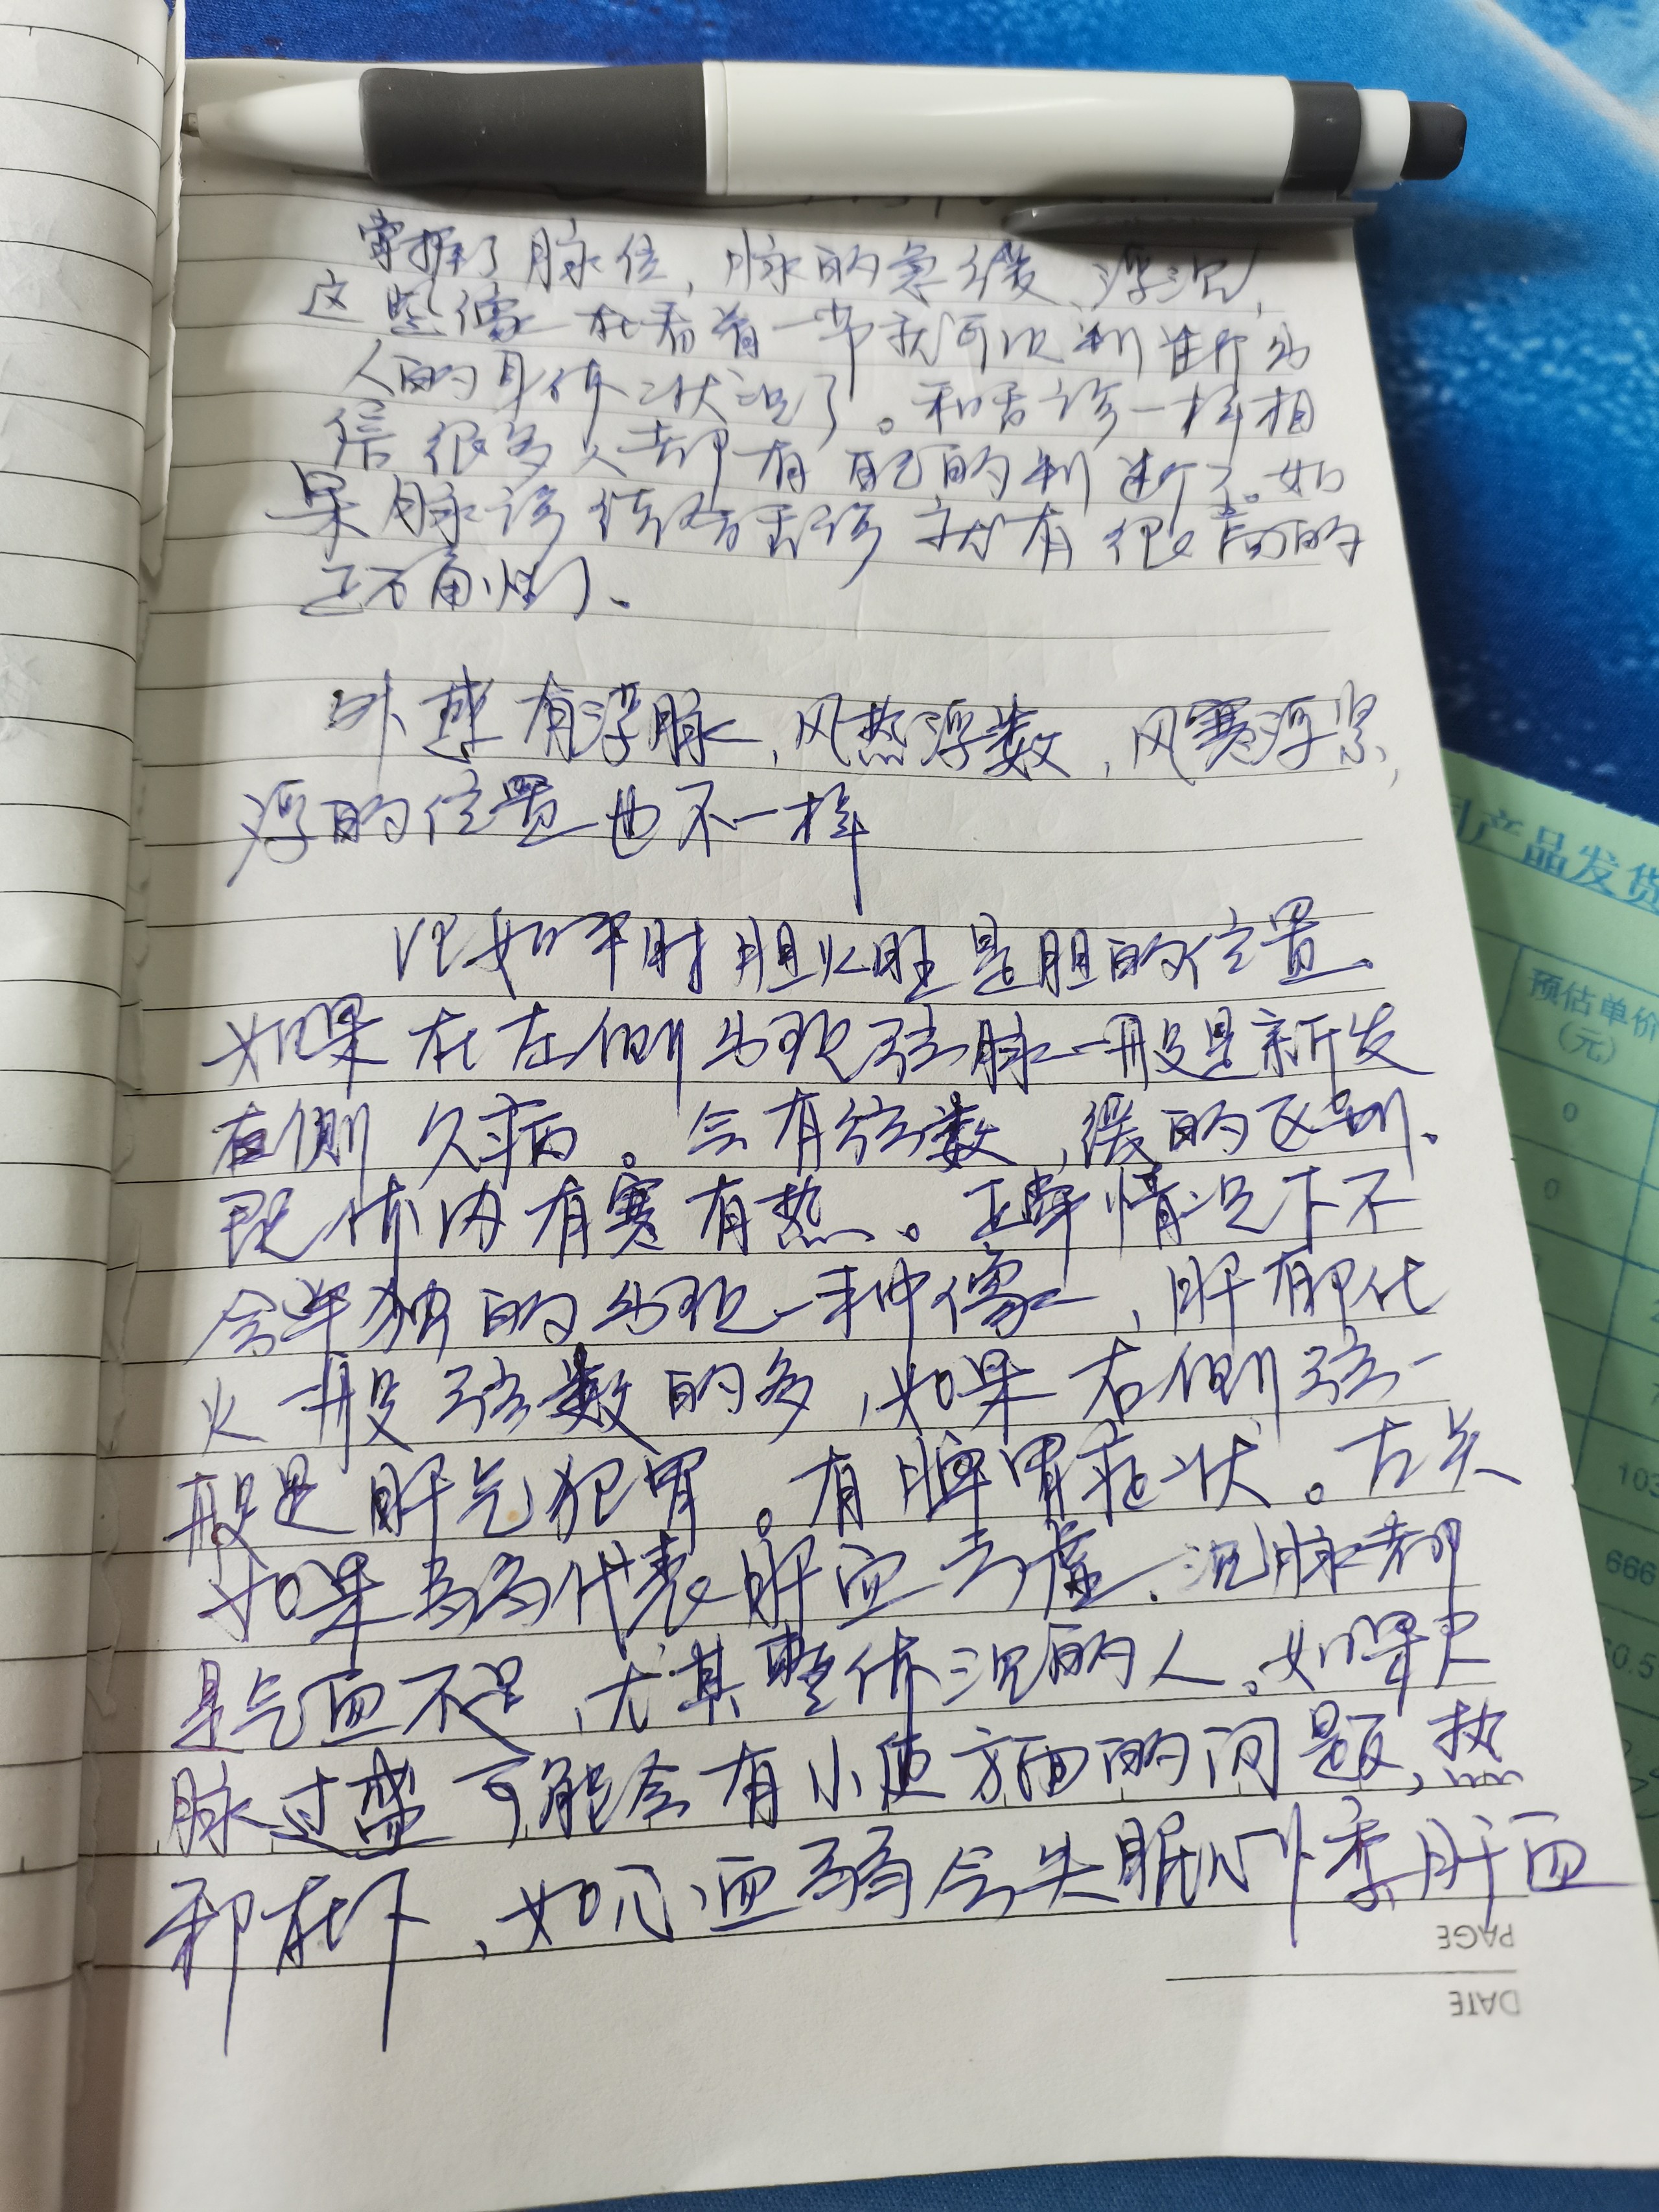 掌握了脉位，脉的急缓、浮沉，
这些像 在看前一节就可以判断出
人的身体状况了。和舌诊一样相
信很多人去即有自己的判断了。如
果脉诊结合舌诊就有很高的
正确性了.
外感有浮脉，风热浮数，风寒浮紧，
浮的位置也不一样
比如平时胆火旺是胆的位置、
如果在左侧出现弦脉一般是新发
右侧久病。会有弦数，缓的区别、
既体内有寒有热。正常情况下不
会单独的出现一种像，肝郁化
火一般弦数的多，如果右侧弦一
般是肝气犯胃。有脾胃症状。左关
如果弱代表肝血亏虚、沉脉都
是气血不足，尤其整体沉的人。如果尺
脉过盛可能会有小便方面的问题，热
邪在下、如心血弱会失眠心悸，肝血
PAGE
DATE
产品发货
预估单价
（元）
0
0
103
666
0.5